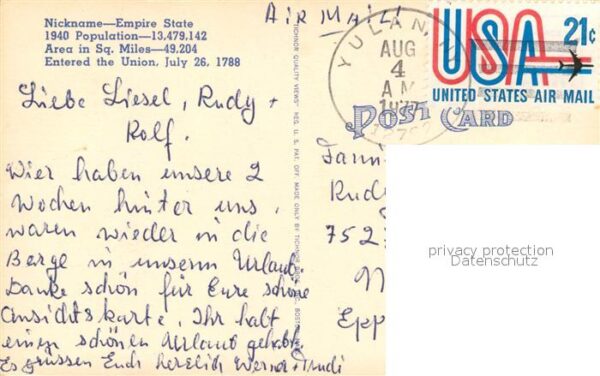 Nickname—Empire State
1940 Population—13,479,142
Area in Sq. Miles—49,204
Entered the Union, July 26, 1788
AIR MAIL
YULAN, N
AUG
4
AM
1977
12792
USA 21¢
UNITED STATES AIR MAIL
POST CARD
TICHNOR QUALITY VIEWS REG. U. S. PAT. OFF. MADE ONLY BY TICHNOR BROS., INC. BOSTON
Liebe Liesel, Rudy +
Rolf.
Wier haben unsere 2
Wochen hinter uns,
waren wieder in die
Berge in unserm Urlaub
Danke schön für Eure schöne
Ansichtskarte. Ihr habt
einen schönen Urlaub gehabt
Es grüssen Euch herzlich Werner + Trudi
Fami
Rudy
752
Epp
privacy protection
Datenschutz